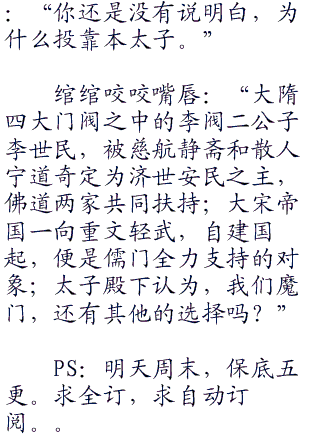 ：“你还是没有说明白，为
什么投靠本太子。”
绾绾咬咬嘴唇：“大隋
四大门阀之中的李阀二公子
李世民，被慈航静斋和散人
宁道奇定为济世安民之主，
佛道两家共同扶持；大宋帝
国一向重文轻武，自建国
起，便是儒门全力支持的对
象；太子殿下认为，我们魔
门，还有其他的选择吗？”
PS：明天周末，保底五
更。求全订，求自动订
阅。。